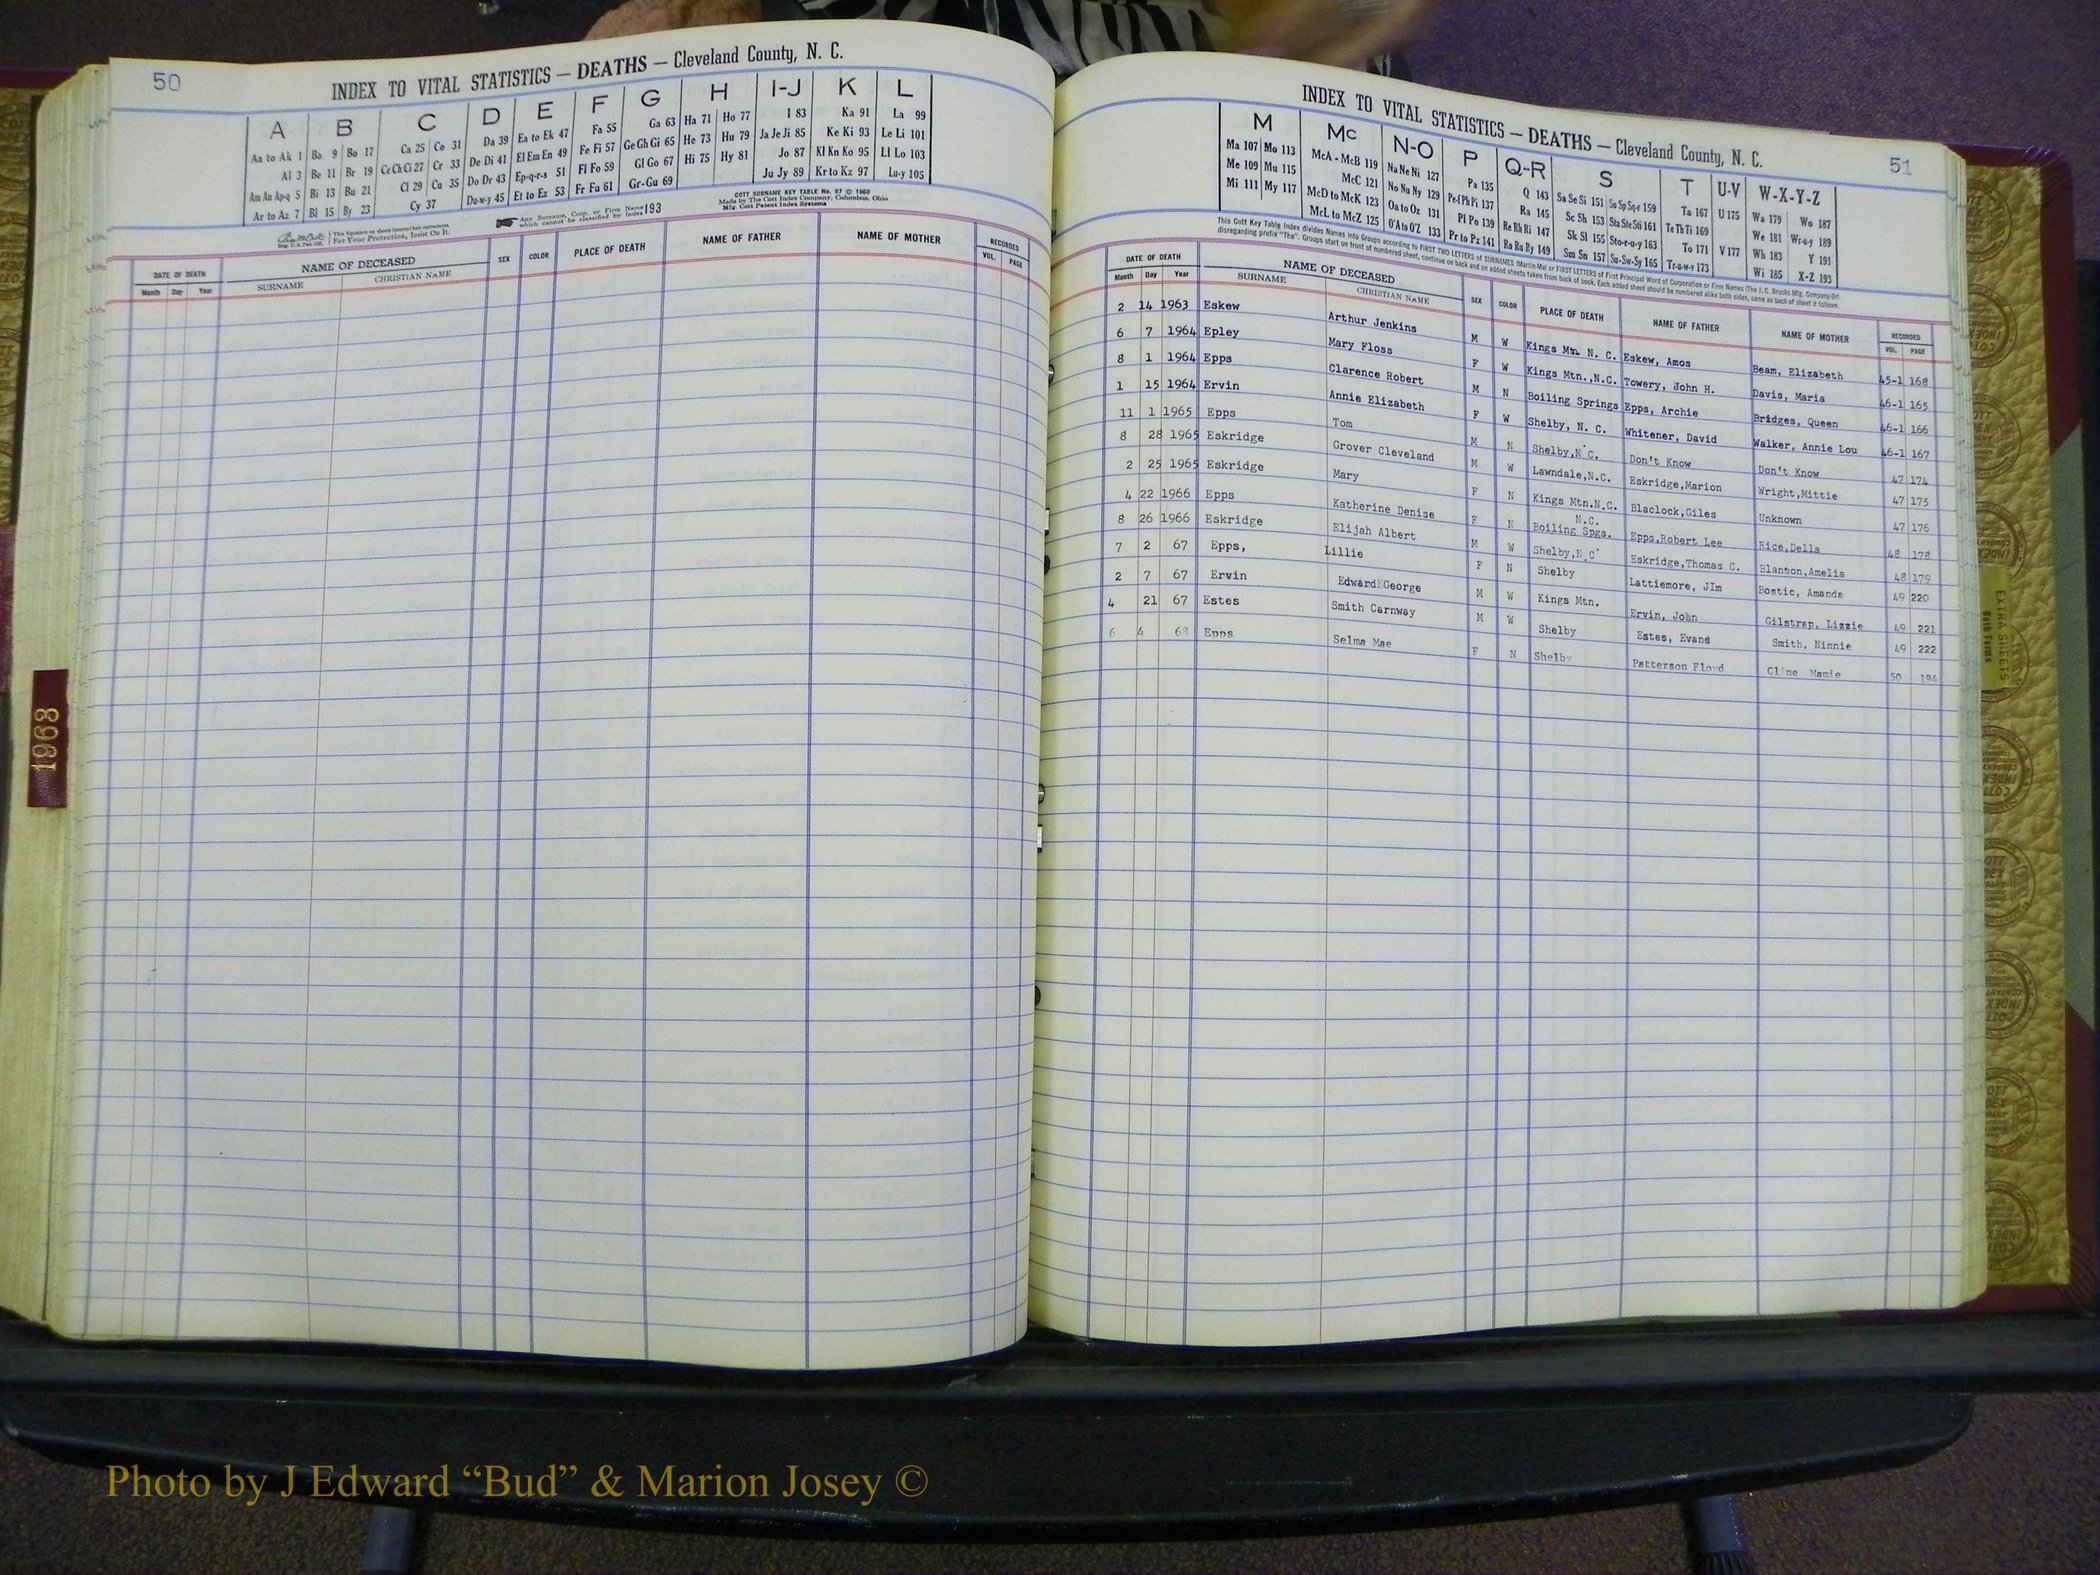 50
INDEX TO VITAL STATISTICS — DEATHS — Cleveland County, N. C.
A B C D E F G H I-J K L
Aa to Ak 1 Ba 9 Bo 17 Ca 25 Co 31 Da 39 Ea to Ek 47 Fa 55 Ga 63 Ha 71 Ho 77 I 83 Ka 91 La 99
Al 3 Be 11 Br 19 Ce Ch Ci 27 Cr 33 De Di 41 El Em En 49 Fe Fi 57 Ge Gh Gi 65 He 73 Hu 79 Ja Je Ji 85 Ke Ki 93 Le Li 101
Am An Ap-q 5 Bi 13 Bu 21 Cl 29 Cu 35 Do Dr 43 Ep-q-r-s 51 Fl Fo 59 Gl Go 67 Hi 75 Hy 81 Jo 87 Kl Kn Ko 95 Ll Lo 103
Ar to Az 7 Bl 15 By 23 Cy 37 Du-w-y 45 Et to Ez 53 Fr Fu 61 Gr-Gu 69 Ju Jy 89 Kr to Kz 97 Lu-y 105
COTT SURNAME KEY TABLE No. 97 © 1960
Made by The Cott Index Company, Columbus, Ohio
Mfg. Cott Patent Index Systems
Any Surname, Corp. or Firm Name which cannot be classified by Index 193
For Your Protection, Insist On It.
DATE OF DEATH NAME OF DECEASED SEX COLOR PLACE OF DEATH NAME OF FATHER NAME OF MOTHER RECORDED
Month Day Year SURNAME CHRISTIAN NAME VOL. PAGE
1968
INDEX TO VITAL STATISTICS — DEATHS — Cleveland County, N. C.
51
M Mc N-O P Q-R S T U-V W-X-Y-Z
Ma 107 Mo 113 McA - McB 119 Na Ne Ni 127 Pa 135 Q 143 Sa Se Si 151 So Sp Sq-r 159 Ta 167 U 175 Wa 179 Wo 187
Me 109 Mu 115 McC 121 No Nu Ny 129 Pe-f Ph Pi 137 Ra 145 Sc Sh 153 Sta Ste Sti 161 Te Th Ti 169 We 181 Wr-u-y 189
Mi 111 My 117 McD to McK 123 Oa to Oz 131 Pl Po 139 Re Rh Ri 147 Sk Sl 155 Sto-r-u-y 163 To 171 V 177 Wh 183 Y 191
McL to McZ 125 O'A to O'Z 133 Pr to Pz 141 Ro Ru Ry 149 Sm Sn 157 Su-Sw-Sy 165 Tr-u-w-y 173 Wi 185 X-Z 193
This Cott Key Table Index divides Names into Groups according to FIRST TWO LETTERS of SURNAMES (Martin-Ma) or FIRST LETTERS of First Principal Word of Corporation or Firm Names (The J. C. Brooks Mfg. Company-Br)
disregarding prefix "The". Groups start on front of numbered sheet, continue on back and on added sheets taken from back of book. Each added sheet should be numbered alike both sides, same as back of sheet it follows.
DATE OF DEATH NAME OF DECEASED SEX COLOR PLACE OF DEATH NAME OF FATHER NAME OF MOTHER RECORDED
Month Day Year SURNAME CHRISTIAN NAME VOL. PAGE
2 14 1963 Eskew Arthur Jenkins M W Kings Mtn. N. C. Eskew, Amos Beam, Elizabeth 45-1 168
6 7 1964 Epley Mary Floss F W Kings Mtn.,N.C. Towery, John H. Davis, Maria 46-1 165
8 1 1964 Epps Clarence Robert M N Boiling Springs Epps, Archie Bridges, Queen 46-1 166
1 15 1964 Ervin Annie Elizabeth F W Shelby, N. C. Whitener, David Walker, Annie Lou 46-1 167
11 1 1965 Epps Tom M N Shelby,N.C. Don't Know Don't Know 47 174
8 28 1965 Eskridge Grover Cleveland M W Lawndale,N.C. Eskridge,Marion Wright,Mittie 47 175
2 25 1965 Eskridge Mary F N Kings Mtn.N.C. Blaclock,Giles Unknown 47 176
4 22 1966 Epps Katherine Denise F N N.C. Boiling Spgs. Epps,Robert Lee Rice,Della 48 178
8 26 1966 Eskridge Elijah Albert M W Shelby,N.C. Eskridge,Thomas C. Blanton,Amelia 48 179
7 2 67 Epps, Lillie F N Shelby Lattiemore, JIm Bostic, Amanda 49 220
2 7 67 Ervin Edward George M W Kings Mtn. Ervin, John Gilstrap, Lizzie 49 221
4 21 67 Estes Smith Carnway M W Shelby Estes, Evans Smith, Ninnie 49 222
6 4 68 Epps Selma Mae F N Shelby Patterson Floyd Cline Mamie 50 194
EXTRA SHEETS
Both Forms
Photo by J Edward “Bud” & Marion Josey ©